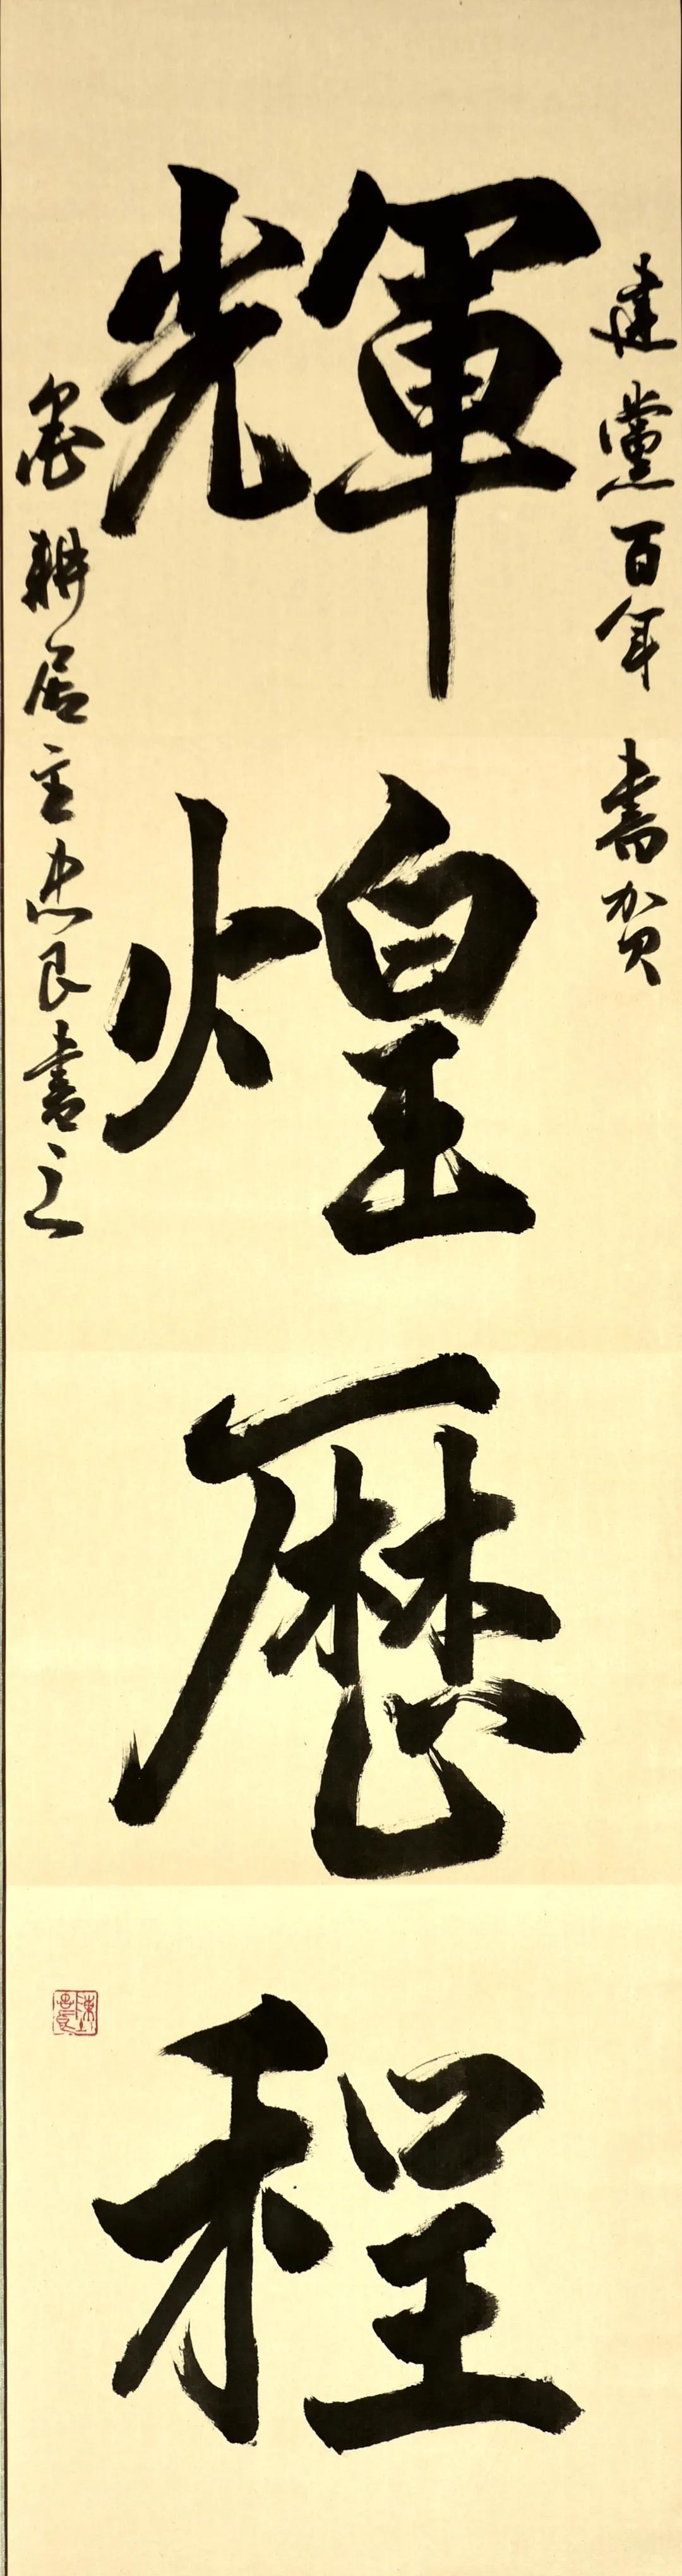 建黨百年 書賀
輝煌歷程
墨耕居主忠良書之